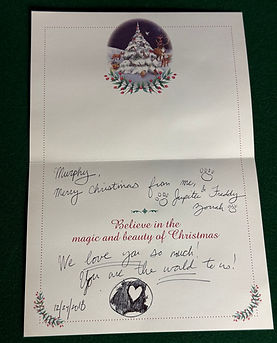 Murphy,
Merry Christmas from me,
Jupiter & Freddy
Believe in the
magic and beauty of Christmas
We love you so much!
You are the world to us!